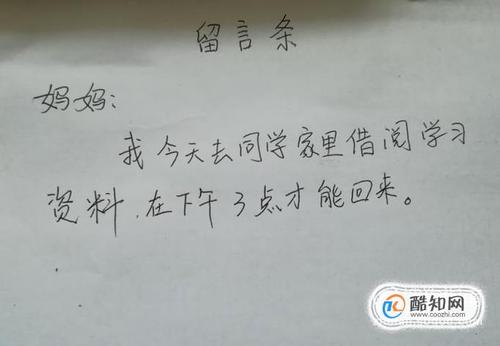 留言条
妈妈:
我今天去同学家里借阅学习
资料,在下午3点才能回来。
酷知网
www.coozhi.com